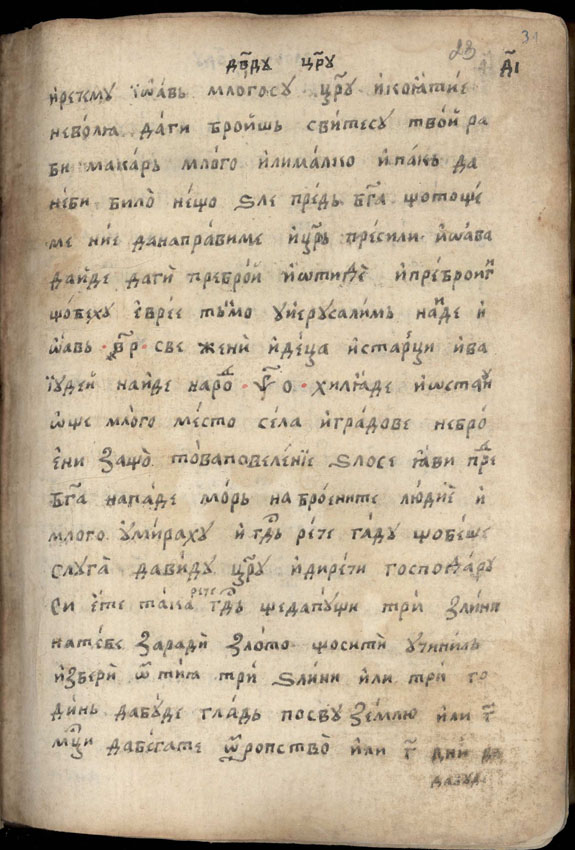 дв҃ду цр҃ю
23 31
д҃і
и҆рече́му їѡ҆́авь мло́госу цр҃у и҆коꙗ҆тиѐ
нево́лꙗ да́ги брои̂шь свитесу тво́й ра
би макарь мло́го и҆лима́лко и҆па́кь да
не́би било̀ не́що ѕле пре́дь бг҃а щото́щѐ
ме ни́е данапра́виме и҆цр҃ь преси́ли и҆ѡ҆а́ва
да́йде даги̂ преброй и҆ѡтидѐ и҆пре́брои ги
що́беху е҆вре́е ть́мо у҆и҆ерусали́мь на́йде и҆
ѡ҆́авь · вр҃ · све жени̂ и҆де́ца и҆ста́рци и҆ва
їу҆де́й на́йде наро́д · у҃о · хилꙗ́де и҆ѡ҆ста́ѝ
ѡ҆́ще мло́го ме́сто се́ла и҆гра́дове небро́
е҆ни защо̀ то́ваповеле́нїе ѕло́се ꙗ҆ви пред
бг҃а напа́де мо́рь набро́ените лю́дїе и҆
мло́го у҆мира́ху и҆ гд҃ь ре́че га́ду що́беше
слуга̀ дави́ду цр҃у и҆дире́чи господа́ру
си е҆́те та́ка рече гд҃ь щеда́пущи три̂ зли́ни
на́тебе за́ради̂ зло́то що́сити̂ у҆чини́ль
и҆збери̂ ѿ ти́ꙗ три̂ ѕли́ни и҆ли три̂ го
ди́нь дабу́де гла́дь посву зе́млю и҆ли г҃
мц҃и дабе́гате ѿ ропство̀ и҆ли г҃ дни̂ да
дабуд